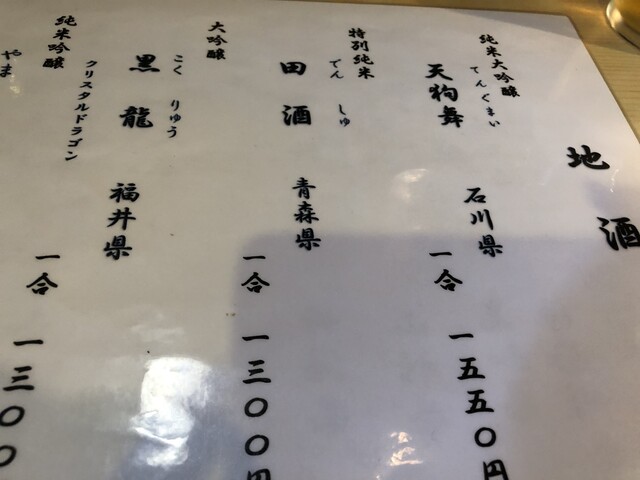 地酒
純米大吟醸
てんぐまい
天狗舞
石川県
一合
一五五〇円
特別純米
でんしゅ
田酒
青森県
一合
一三〇〇円
大吟醸
こくりゅう
黒龍
クリスタルドラゴン
福井県
一合
一三〇〇
純米吟醸
やま